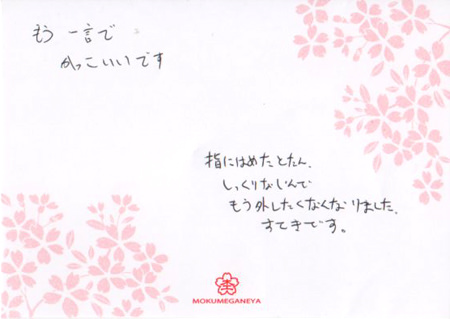 もう 一言で
かっこいいです
指にはめたとたん、
しっくりなじんで
もう外したくなくなりました。
すてきです。
MOKUMEGANEYA